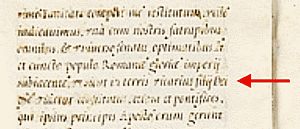 me restitutum, utile
iudicavimus, una cum nostris satrapibus
omnibus, et universo senatu optimatibus
et cuncto populo Romane glorie imperij
subiacente, ut sicut in terris vicarius filij Dei
esse videtur constitutus, etiam et pontifices,
qui ipsius principis Apostolorum gerunt